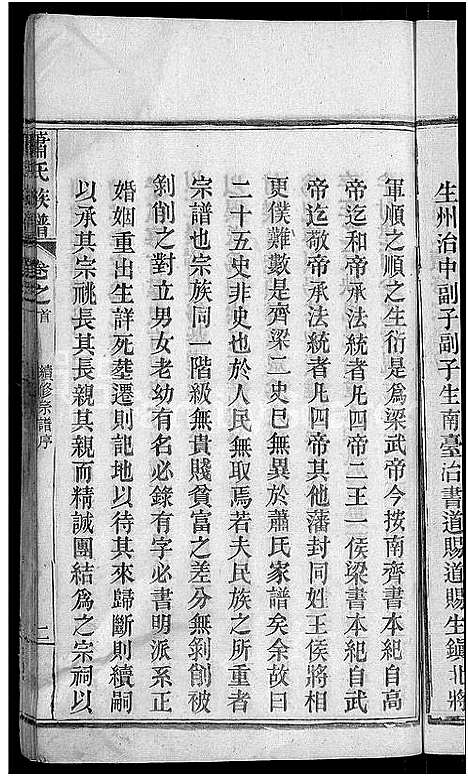 生州治中副子副子生南臺治書道賜道賜生鎭北將
軍順之順之生衍是爲梁武帝今按南齊書本紀自高
帝迄和帝承法統者凡四帝二王一侯梁書本紀自武
帝迄敬帝承法統者凡四帝其他藩封同姓王侯將相
更僕難數是齊梁二史已無異於蕭氏家譜矣余故曰
二十五史非史也於人民無取焉若夫民族之所重者
宗譜也宗族同一階級無貴賤貧富之差分無剝削被
剝削之對立男女老幼有名必錄有字必書明派系正
婚姻重出生詳死塟遷則記地以待其來歸斷則續嗣
以承其宗祧長其長親其親而精誠團結爲之宗祠以
蕭氏族譜 卷之首 續修宗譜序 二